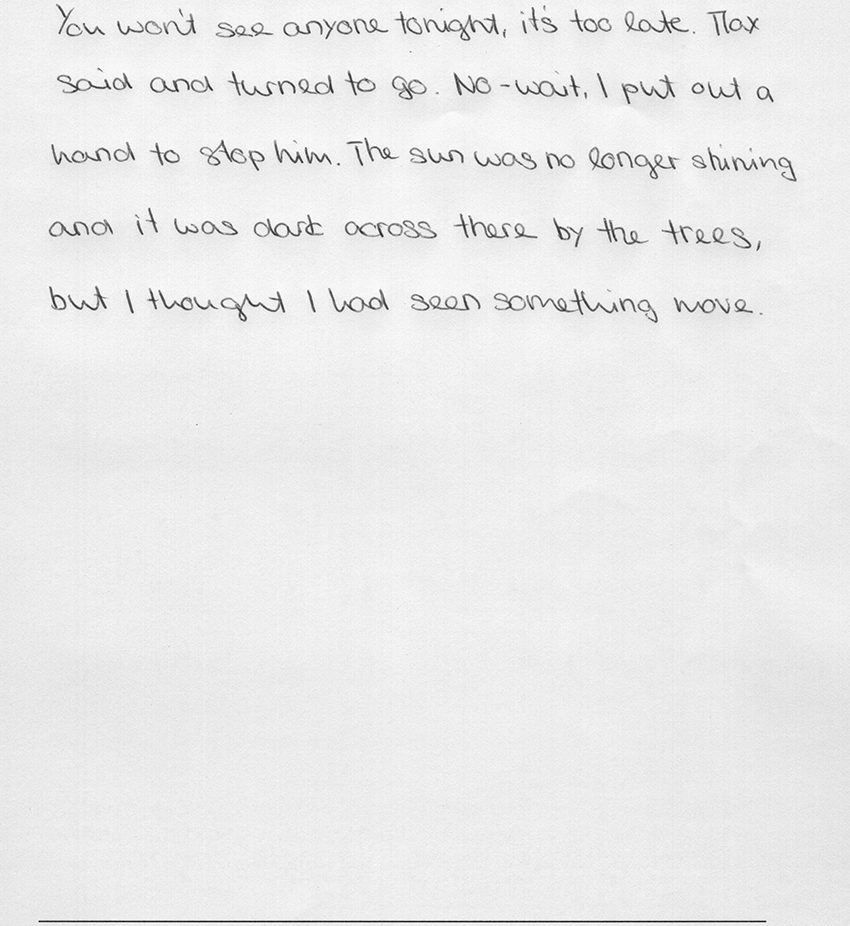 You won't see anyone tonight, it's too late. Max
said and turned to go. No-wait, I put out a
hand to stop him. The sun was no longer shining
and it was dark across there by the trees,
but I thought I had seen something move.